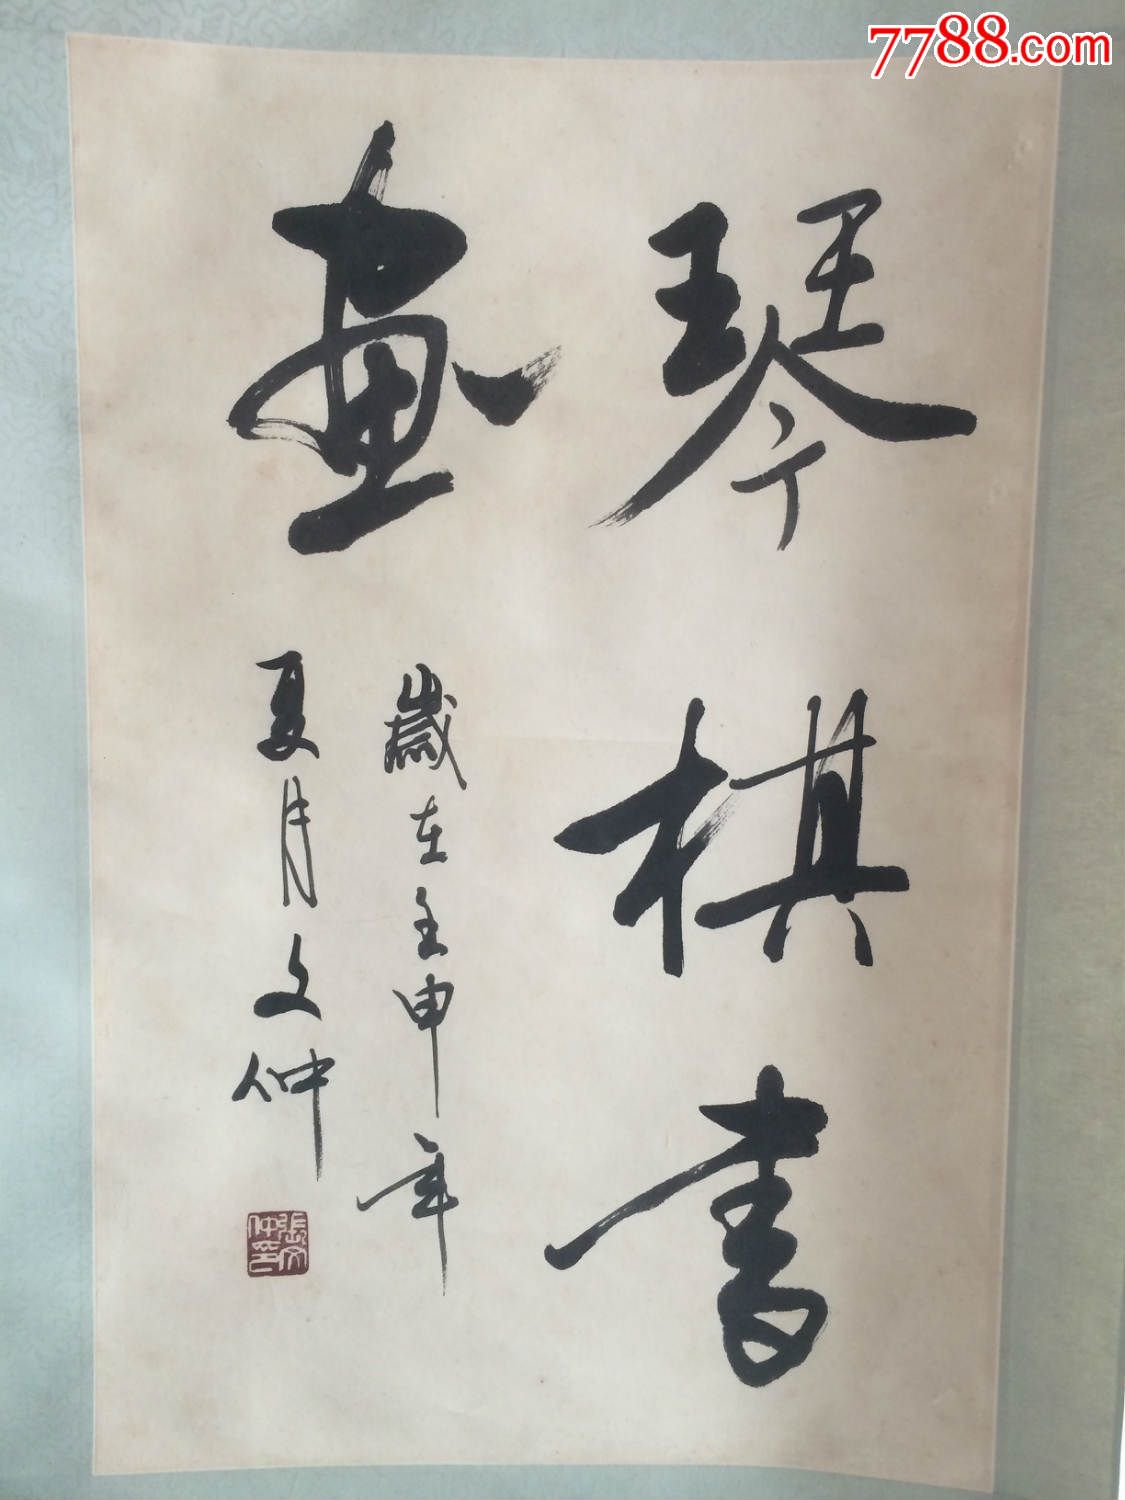 7788.com
琴棋書
畫
歲在壬申年
夏月文仲
張文仲印